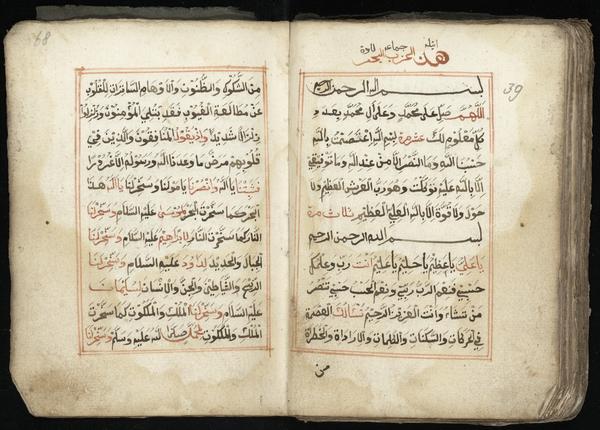 39
هذا حزب البحر
بسم الله الرحمن الرحيم
اللهم صل على محمد وعلى آل محمد بعدد
كل معلوم لك عشر مرة بسم الله اعتصمت بالله
حسبنا الله وما النصر الا من عند الله وما توفيقي
الا بالله عليه توكلت وهو رب العرش العظيم ولا
حول ولا قوة الا بالله العلي العظيم ثلاث مرة
بسم الله الرحمن الرحيم
يا علي يا عظيم يا حليم يا عليم انت ربي وعلمك
حسبي فنعم الرب ربي ونعم الحسب حسبي تنصر
من تشاء وانت العزيز الرحيم نسئالك العصمة
في الحركات والسكنات والكلمات والارادات والخطرات
من
68
من الشكوك والظنون والاوهام الساترات للقلوب
عن مطالعة الغيوب فقد ابتلي المؤمنون وزلزلوا
زلزالا شديدا واذ يقول المنافقون والذين في
قلوبهم مرض ما وعدنا الله ورسوله الا غرورا
فثبتنا يا الله وانصرنا يا مولنا وسخر لنا يا الله هذا
البحر كما سخرت البحر لموسى عليه السلام وسخر لنا
النار كما سخرت النار لابراهيم عليه السلام وسخر لنا
الجبال والحديد لداود عليه السلام وسخر لنا
الريح والشياطين والجن والانسان لسليمان
عليه السلام وسخر لنا الملك والملكوت كما سخرت
الملك والملكوت لمحمد صلى الله عليه وسلم وسخر لنا